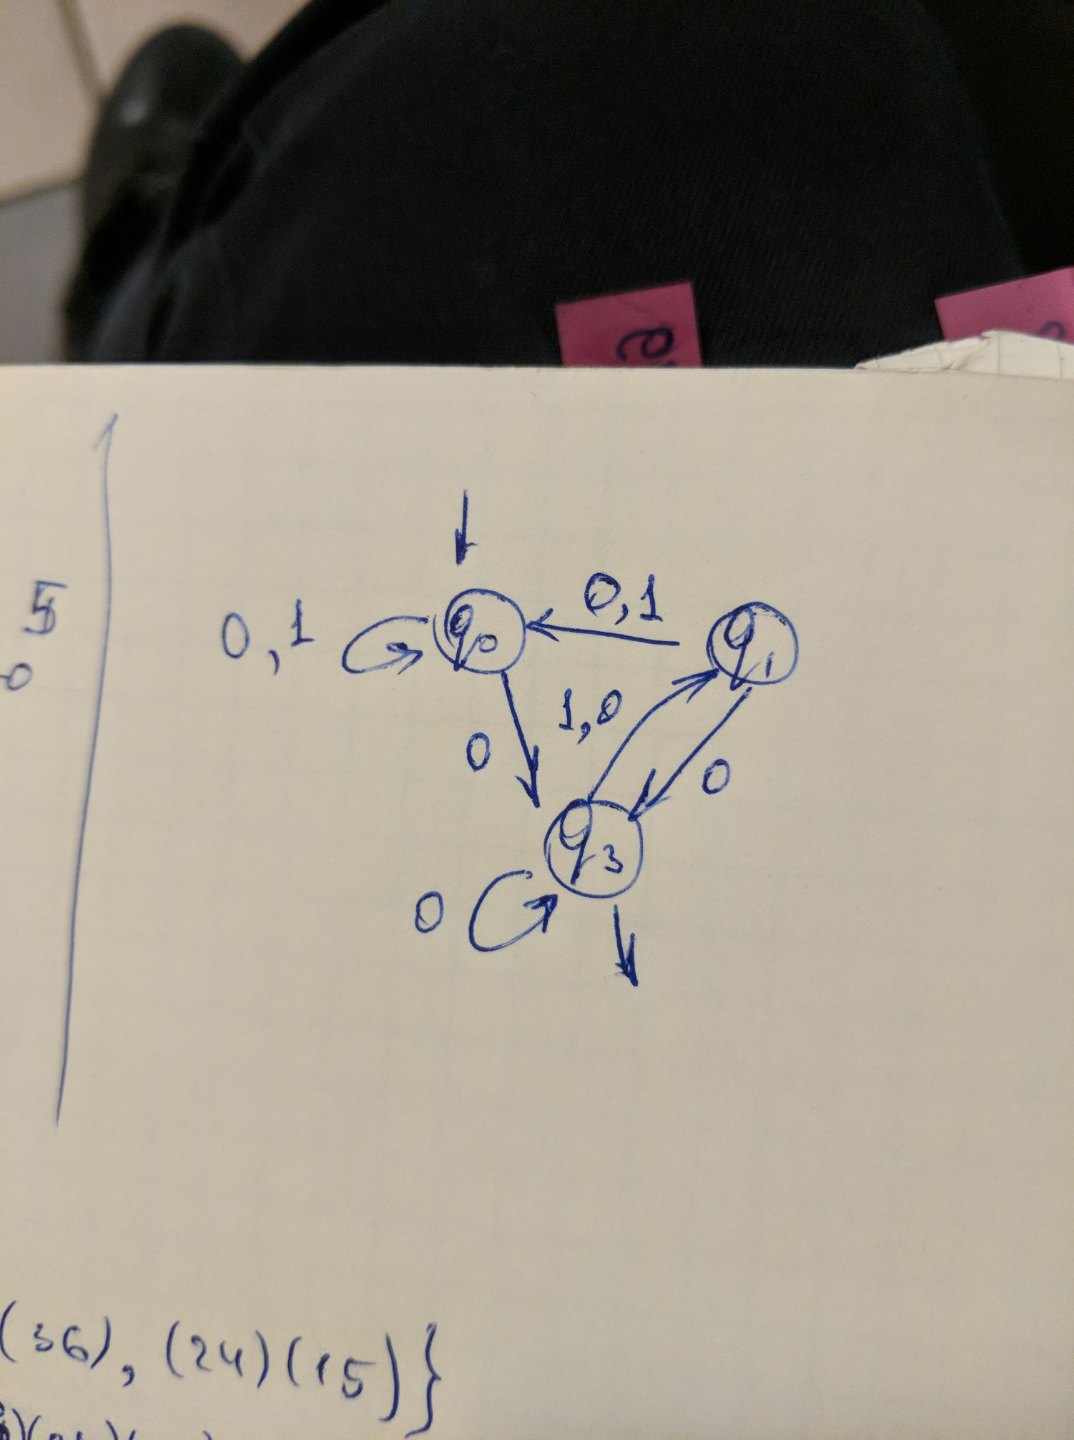 5
0
0,1
q0
0,1
q1
1,0
0
0
q3
0
(36), (24)(15)}